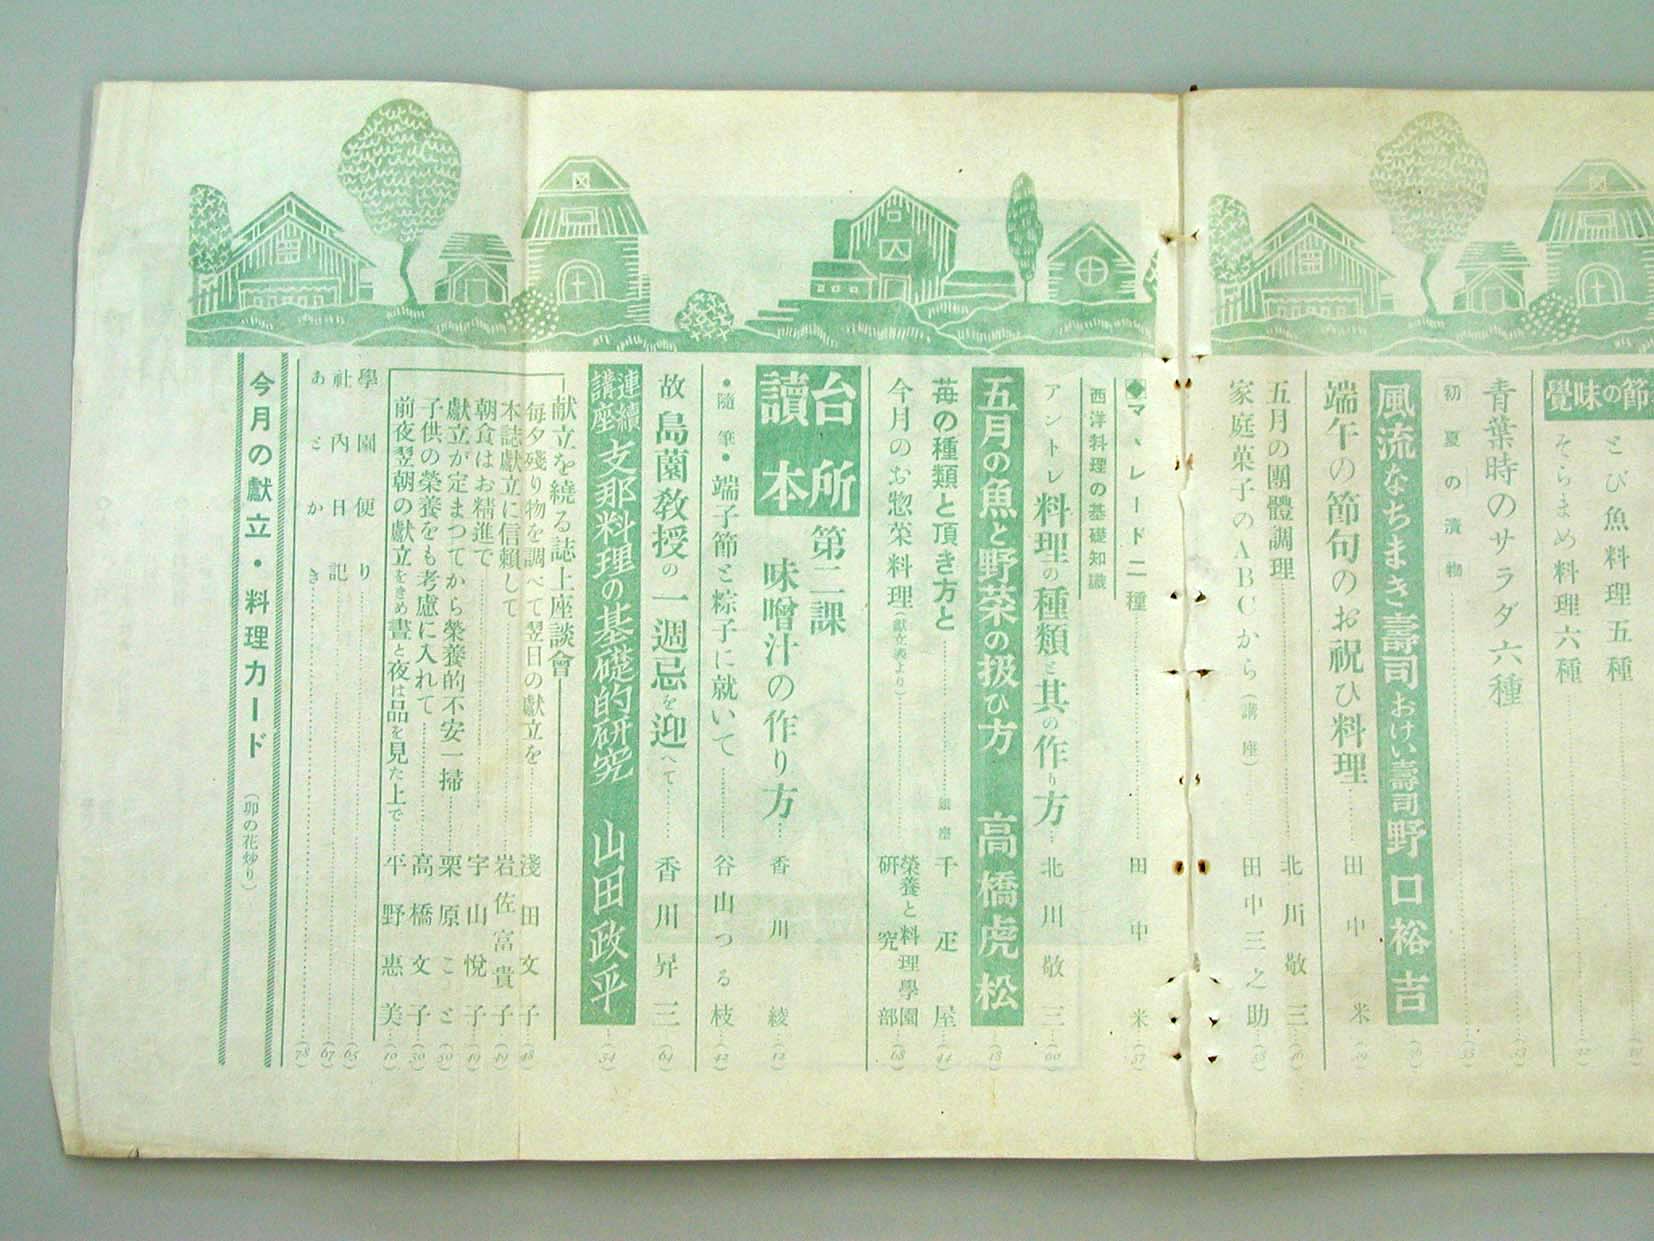 節の味覺
とび魚料理五種
そらまめ料理六種
青葉時のサラダ六種
初夏の漬物
風流なちまき壽司おけい壽司 野口裕吉
端午の節句のお祝ひ料理 田中米
五月の團體調理 北川敬三
家庭菓子のABCから(講座) 田中三之助
マーマレード二種 田中米
西洋料理の基礎知識
アントレ料理の種類と其の作り方 北川敬三
五月の魚と野菜の扱ひ方 高橋虎松
苺の種類と頂き方と 銀座 千疋屋
今月のお惣菜料理(献立表より) 榮養と料理學園研究部
台所讀本 第二課
味噌汁の作り方 香川綾
・隨筆・端子節と粽子に就いて 谷山つる枝
故島薗教授の一週忌を迎へて 香川昇三
連續講座 支那料理の基礎的研究 山田政平
献立を繞る誌上座談會
毎夕殘り物を調べて翌日の獻立を 淺田文子
本誌獻立に信頼して 岩佐富貴子
朝食はお精進で 宇山悅子
獻立が定まつてから榮養的不安一掃 栗原こと
子供の榮養をも考慮に入れて 高橋文子
前夜翌朝の献立をきめ晝と夜は品を見た上で 平野惠美
學園便り
社内日記
あとかき
今月の獻立・料理カード(卯の花炒り)